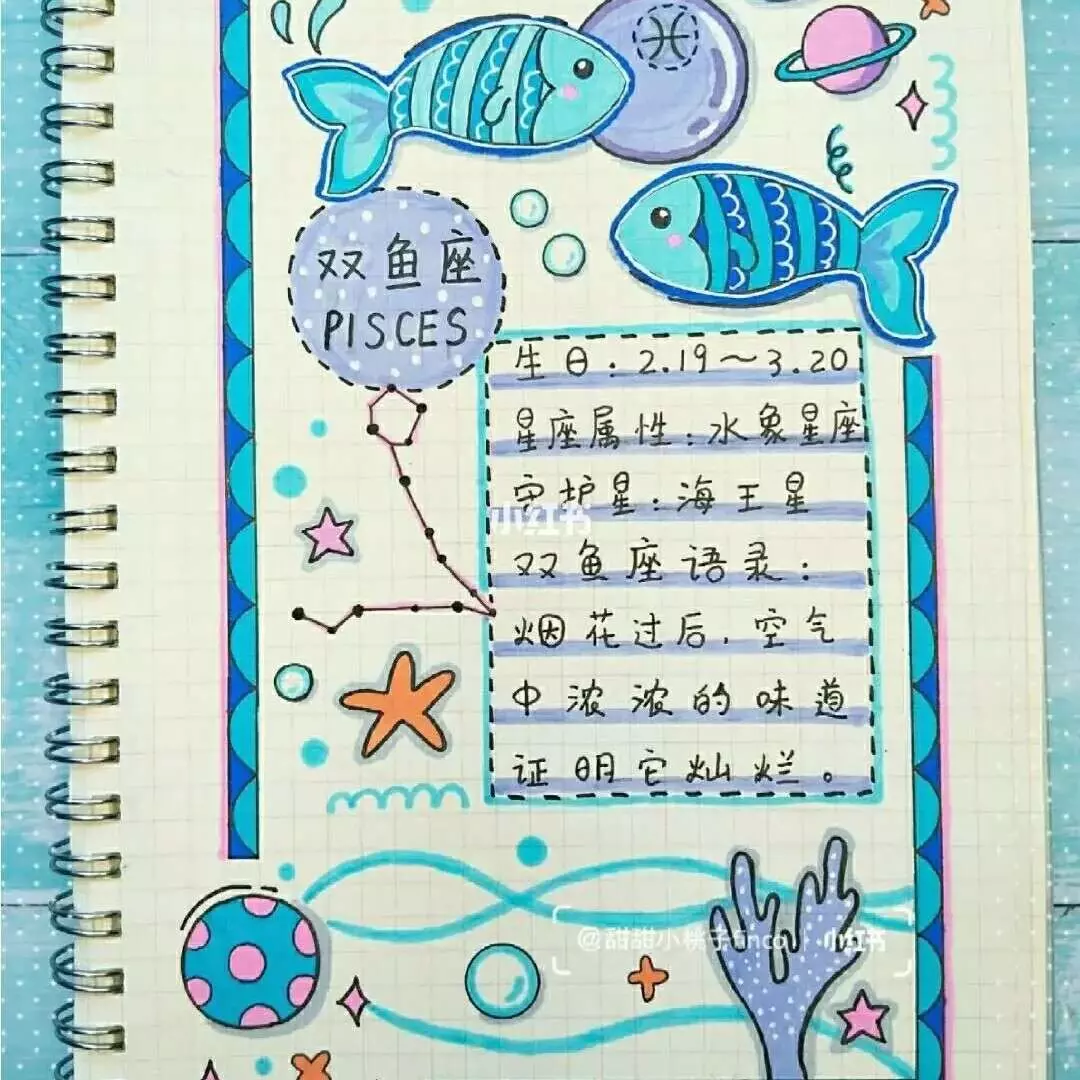 双鱼座
PISCES
生日：2.19～3.20
星座属性：水象星座
守护星：海王星
小红书
双鱼座语录：
烟花过后，空气
中浓浓的味道
证明它灿烂。
@甜甜小桃子finco
小红书